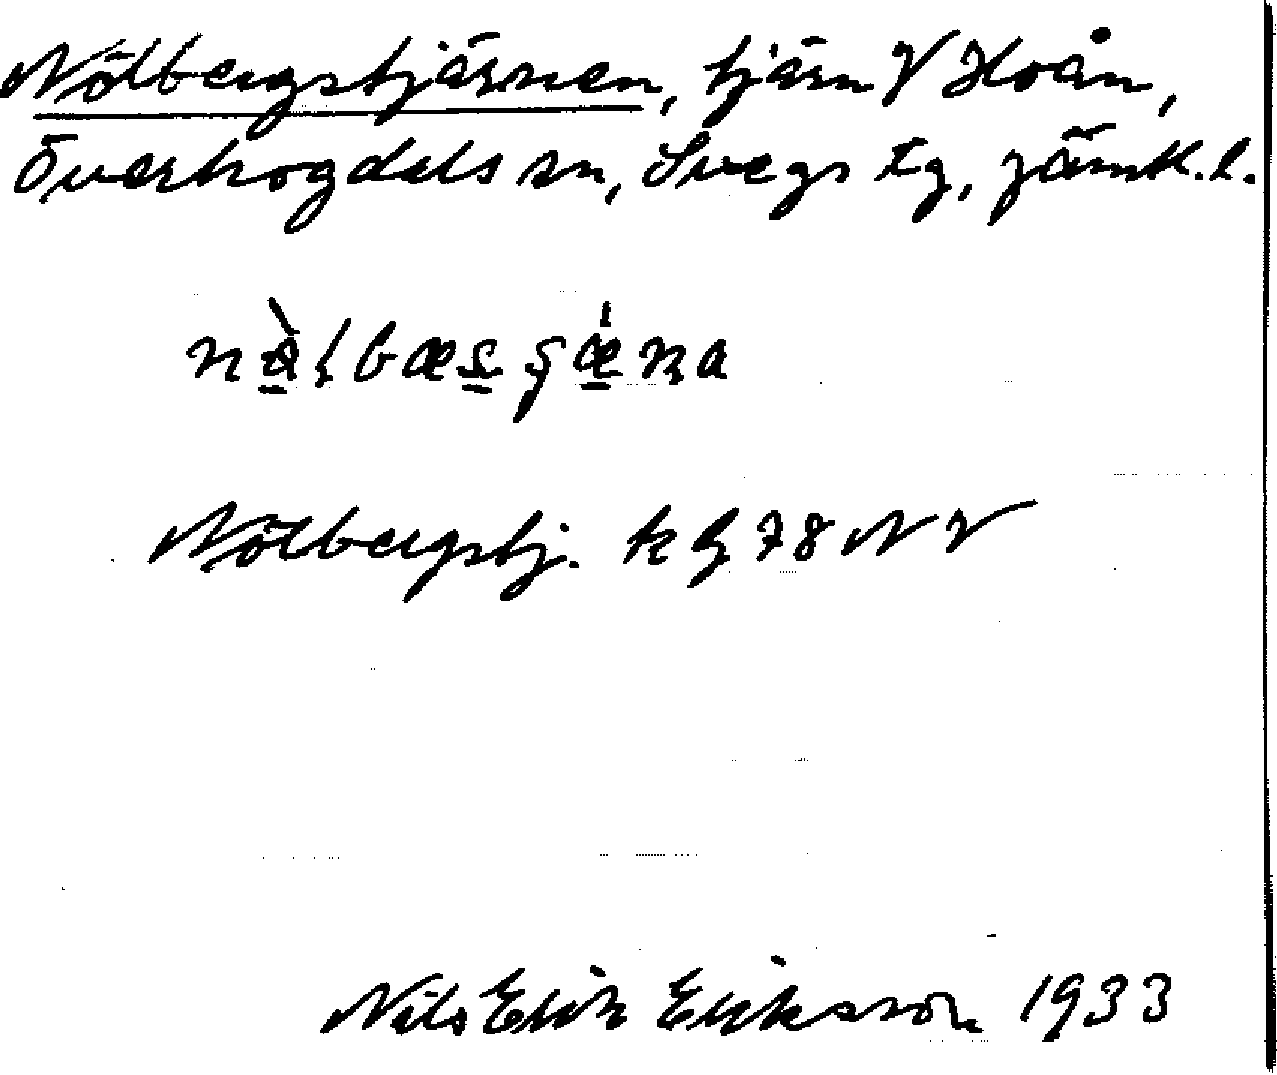 Nölbergstjärnen, tjärn V Hoån,
Överhogdals sn, Svegs tg, Jämtl. l.
Nölbergstj. k bl 78 NV
Nils Erik Eriksson 1933